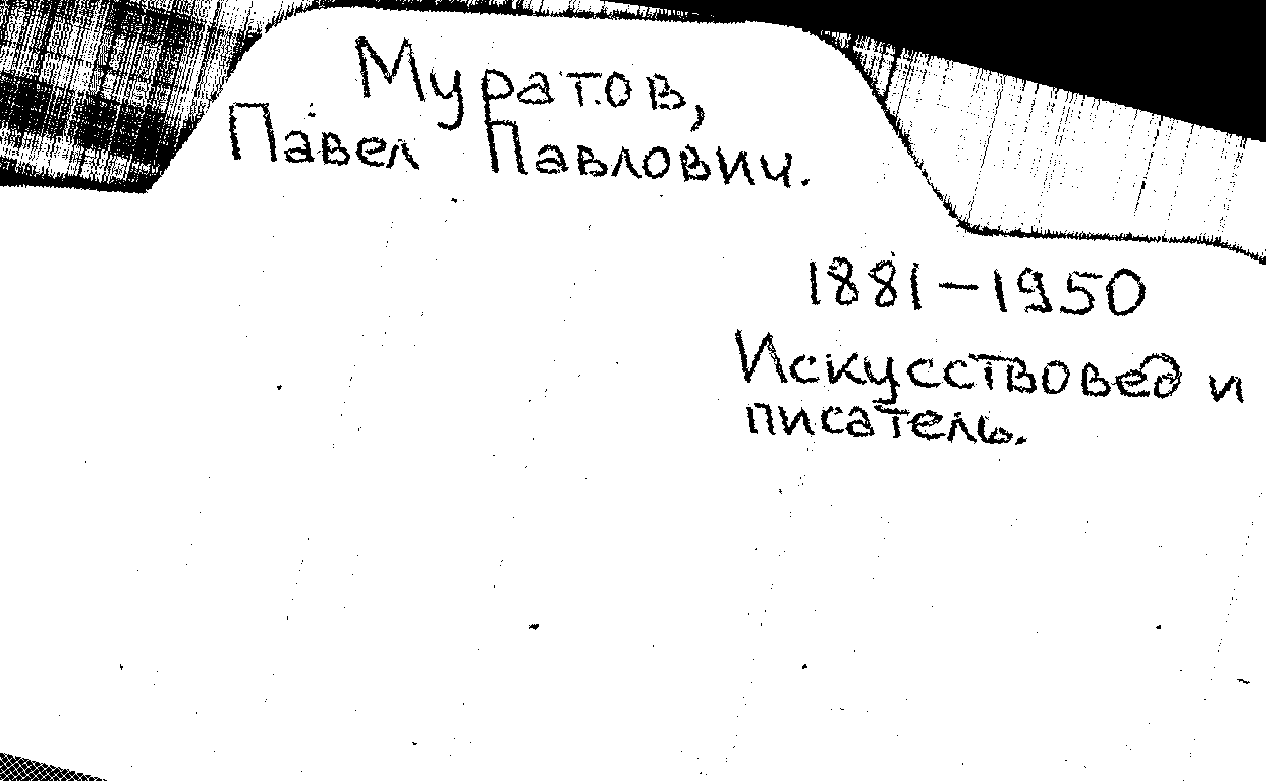 Муратов,
Павел Павлович.
1881–1950
Искусствовед и
писатель.